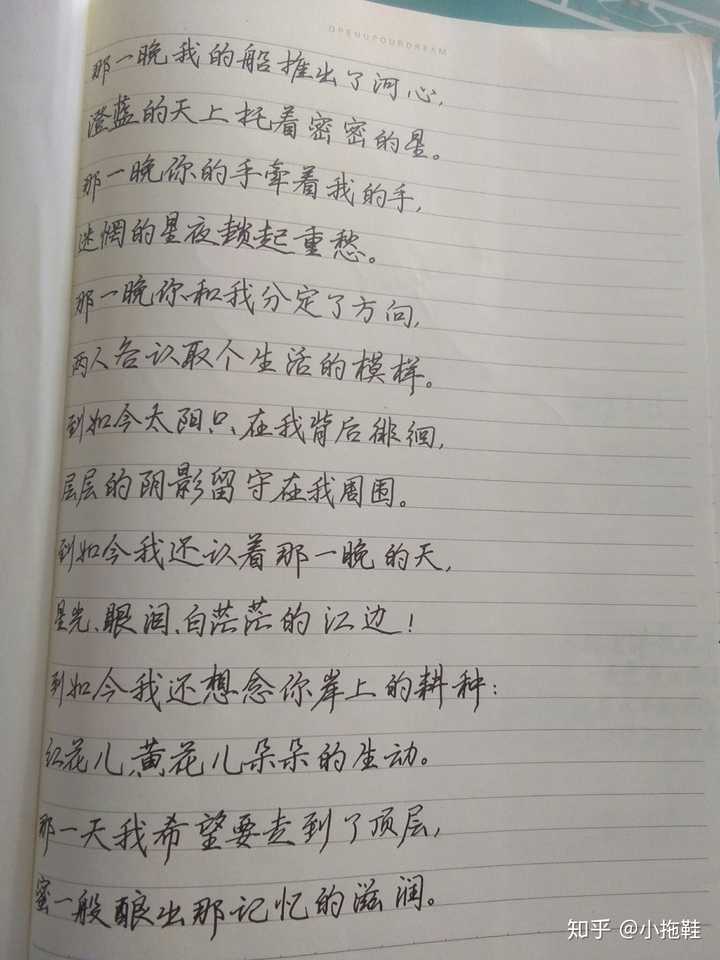 OPENUPOURDREAM
那一晚我的船推出了河心,
澄蓝的天上托着密密的星。
那一晚你的手牵着我的手,
迷惘的星夜锁起重愁。
那一晚你和我分定了方向,
两人各认取个生活的模样。
到如今太阳只在我背后徘徊,
层层的阴影留守在我周围。
到如今我还认着那一晚的天,
星光、眼泪、白茫茫的江边!
到如今我还想念你岸上的耕种:
红花儿,黄花儿朵朵的生动。
那一天我希望要走到了顶层,
蜜一般酿出那记忆的滋润。
知乎 @小拖鞋